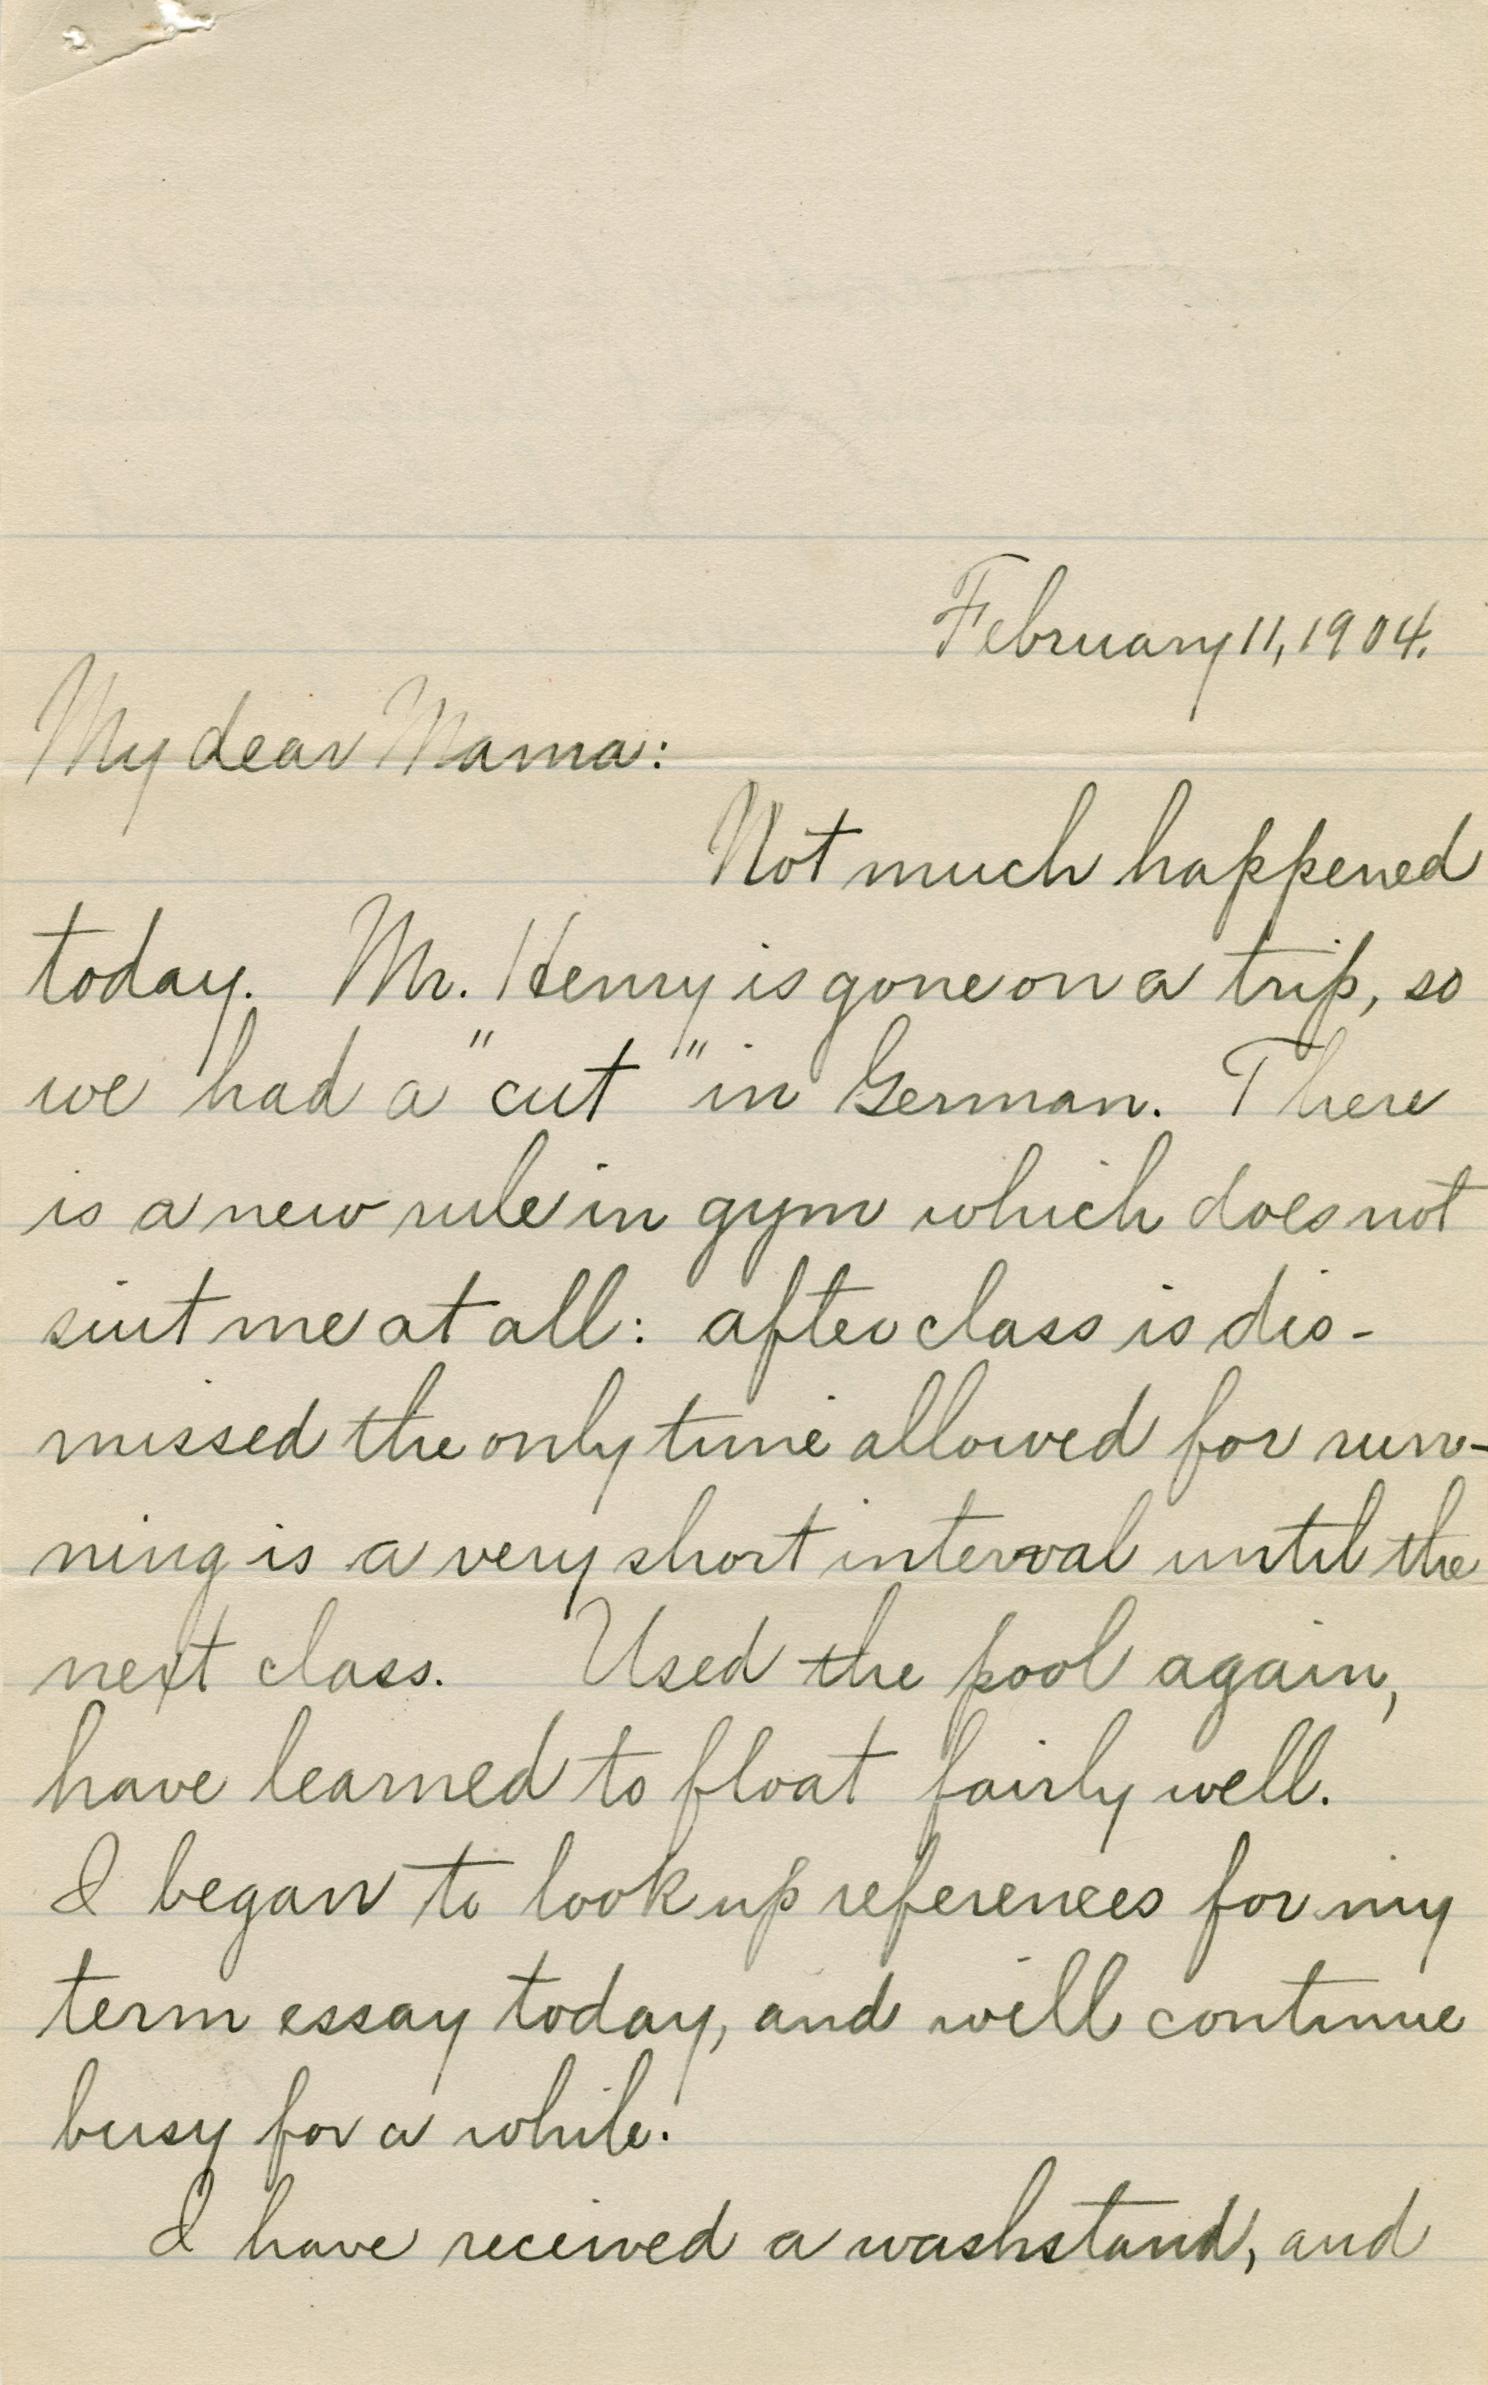 February 11, 1904.
My dear Mama:
Not much happened
today. Mr. Henry is gone on a trip, so
we had a "cut" in German. There
is a new rule in gym which does not
suit me at all: after class is dis-
missed the only time allowed for run-
ning is a very short interval until the
next class. Used the pool again,
have learned to float fairly well.
I began to look up references for my
term essay today, and will continue
busy for a while.
I have received a washstand, and